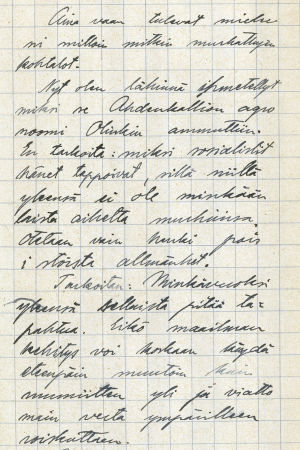 Aina vaan tulevat mielee-
ni milloin mitkin murhattujen
kohtalot.
Nyt olen lähinnä ihmetellyt
miksi se Ahdenkallion agro
noomi Olinkin ammuttiin.
En tarkoita: miksi sosialistit
hänet tappoivat, sillä niillä
yleensä ei ole minkään
laista aihetta murhiinsa.
Otetaan vain henki pois
i största allmänhet.
Tarkoitan: Minkävuoksi
yleensä sellaista pitää ta-
pahtua. Eikö maailman
kehitys voi koskaan käydä
eteenpäin muutoin kuin
ruumiitten yli ja viatto
main verta ympärilleen
roiskuttaen.